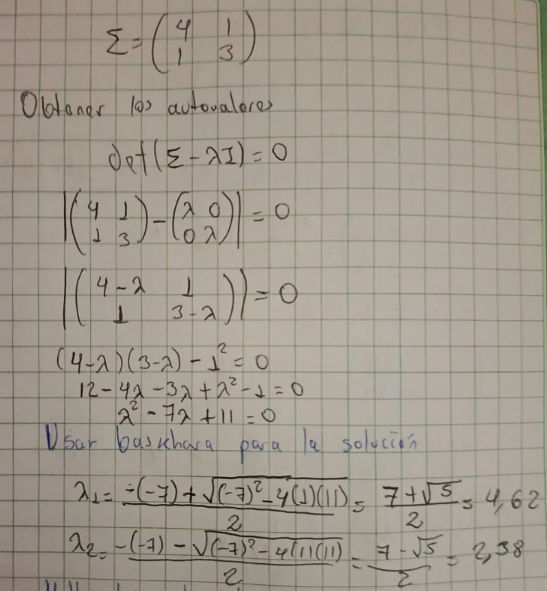 Σ = (4 1
1 3)
Obtener los autovalores
det(Σ - λI) = 0
|(4 1
1 3) - (λ 0
0 λ)| = 0
|(4-λ 1
1 3-λ)| = 0
(4-λ)(3-λ) - 1² = 0
12 - 4λ - 3λ + λ² - 1 = 0
λ² - 7λ + 11 = 0
Usar baskhara para la solución
λ₁ = -(-7) + √(-7)² - 4(1)(11) / 2 = 7 + √5 / 2 = 4,62
λ₂ = -(-7) - √(-7)² - 4(1)(11) / 2 = 7 - √5 / 2 = 2,38